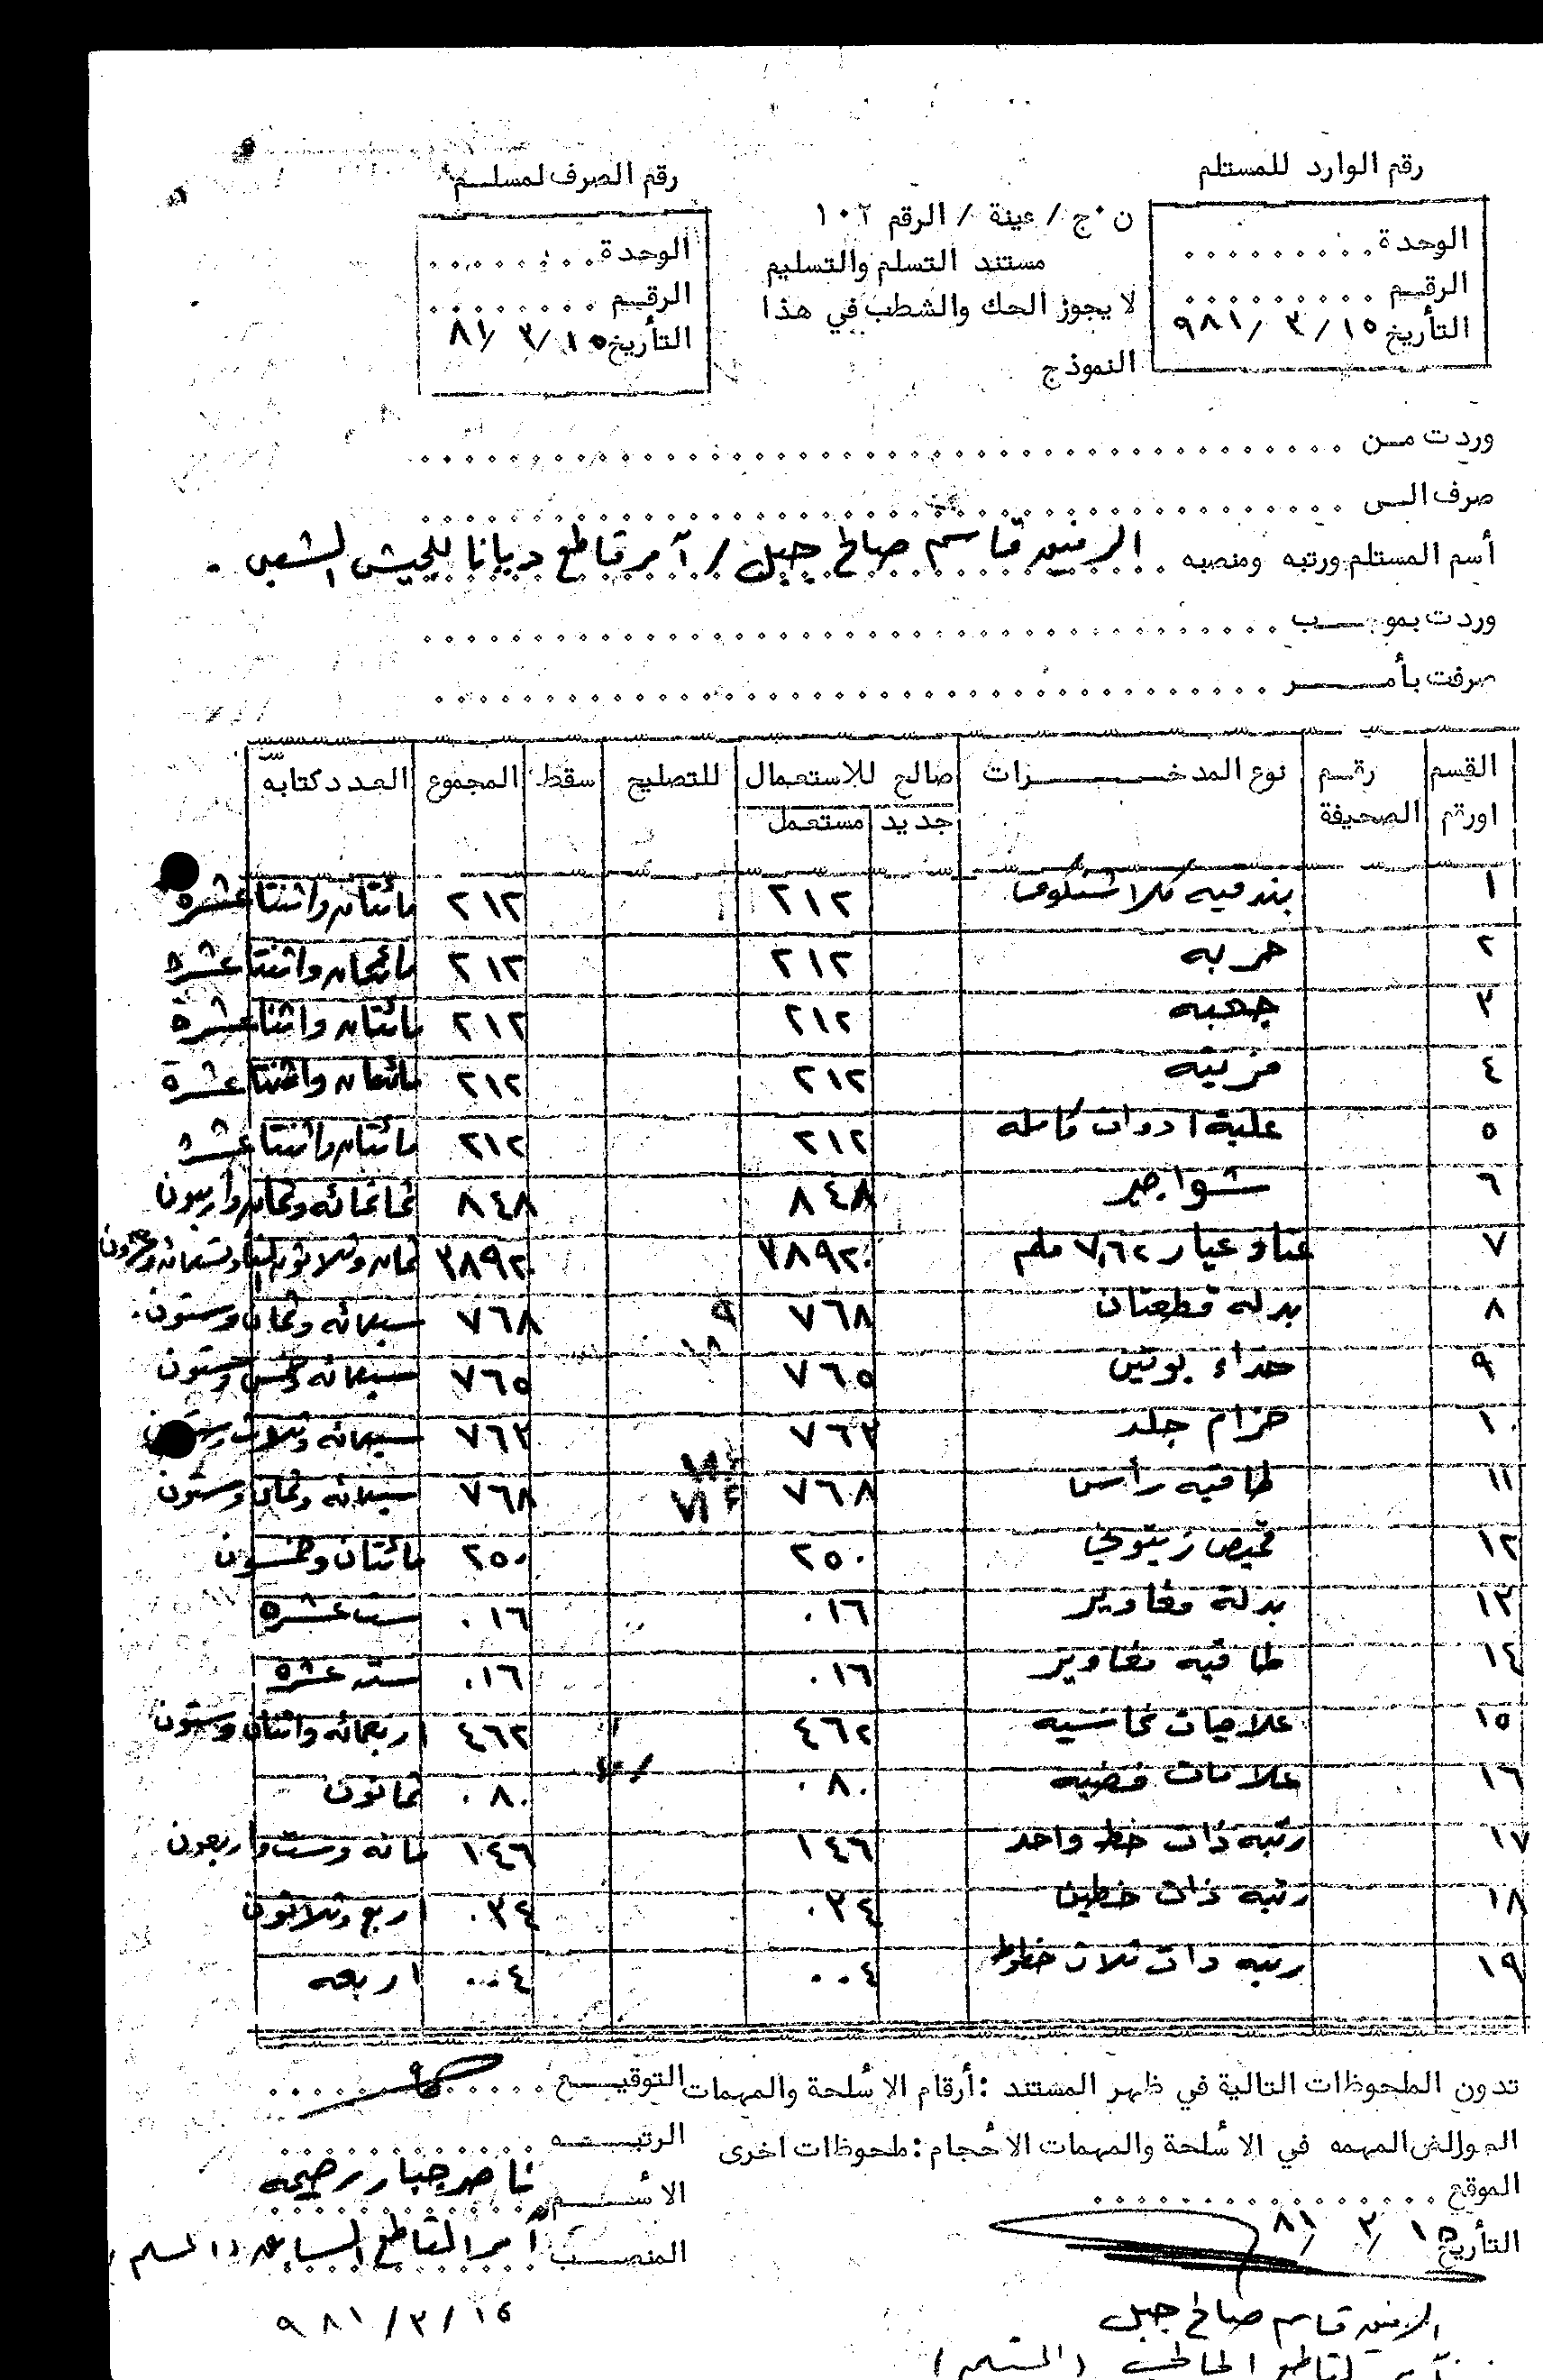 رقم الوارد للمستلم
الوحدة . . . . . . . . .
الرقيم . . . . . . . . .
التأريخ ١٥ / ٣ / ٩٨١
ن ٠ ج / عينة / الرقم ١٠٢
مستند التسلم والتسليم
لا يجوز الحك والشطب في هذا
النموذج
رقم الصرف لمسلم
الوحدة . . . . . . . .
الرقيم . . . . . . . .
التأريخ ١٥ / ٣ / ٨١
وردت من
صرف الى
أسم المستلم ورتبه ومنصبه الرفيق قاسم صالح جبل / آمر قاطع ديانا للجيش الشعبي .
وردت بموجب
صرفت بأمر
القسم اورقم | رقم الصحيفة | نوع المدخرات | صالح للاستعمال جديد مستعمل | للتصليح | سقط | المجموع | العدد كتابة
١ بندقيه كلاشنكوف ٢١٢ ٢١٢ مائتان واثنتا عشره
٢ حربه ٢١٢ ٢١٢ مائتان واثنتا عشره
٣ جعبه ٢١٢ ٢١٢ مائتان واثنتا عشرة
٤ مزيته ٢١٢ ٢١٢ مائتان واثنتا عشرة
٥ علبة ادوات كامله ٢١٢ ٢١٢ مائتان واثنتا عشره
٦ شواجير ٨٤٨ ٨٤٨ ثمانمائه وثمان واربعون
٧ عتاد عيار ٧,٦٢ ملم ٣٨٩٢٠ ٣٨٩٢٠ ثمان وثلاثون الفا وتسعمائه وعشرون
٨ بدله قطعتان ٧٦٨ ٧٦٨ سبعمائه وثمان وستون .
٩ حذاء بوتين ٧٦٥ ٧٦٥ سبعمائه وخمس وستون
١٠ حزام جلد ٧٦٣ ٧٦٣ سبعمائه وثلاث وستون
١١ طاقيه رأس ٧٦٨ ٧٦٨ سبعمائه وثمان وستون
١٢ قميص زيتوني ٢٥٠ ٢٥٠ مائتان وخمسون
١٣ بدلة مغاوير ٠١٦ ٠١٦ ست عشره
١٤ طاقيه مغاوير ٠١٦ ٠١٦ سته عشره
١٥ علامات نحاسيه ٤٦٢ ٤٦٢ اربعمائه واثنتان وستون
١٦ علامات فضيه ٠٨٠ ٠٨٠ ثمانون
١٧ رتبه ذات خط واحد ١٤٦ ١٤٦ مائه وست واربعون
١٨ رتبه ذات خطين ٠٣٤ ٠٣٤ اربع وثلاثون
١٩ رتبه ذات ثلاث خطوط ٠٠٤ ٠٠٤ اربعه
تدون الملحوظات التالية في ظهر المستند : أرقام الاسلحة والمهمات
في الاسلحة والمهمات الاحجام : ملحوظات اخرى
الموقع
التأريخ ١٥ / ٣ / ٨١
الرفيق قاسم صالح جبل
التوقيع
الرتبه
الاسم ناصر جبار
المنصب آمر القاطع السابق ( المسلم )
١٥ / ٣ / ٩٨١